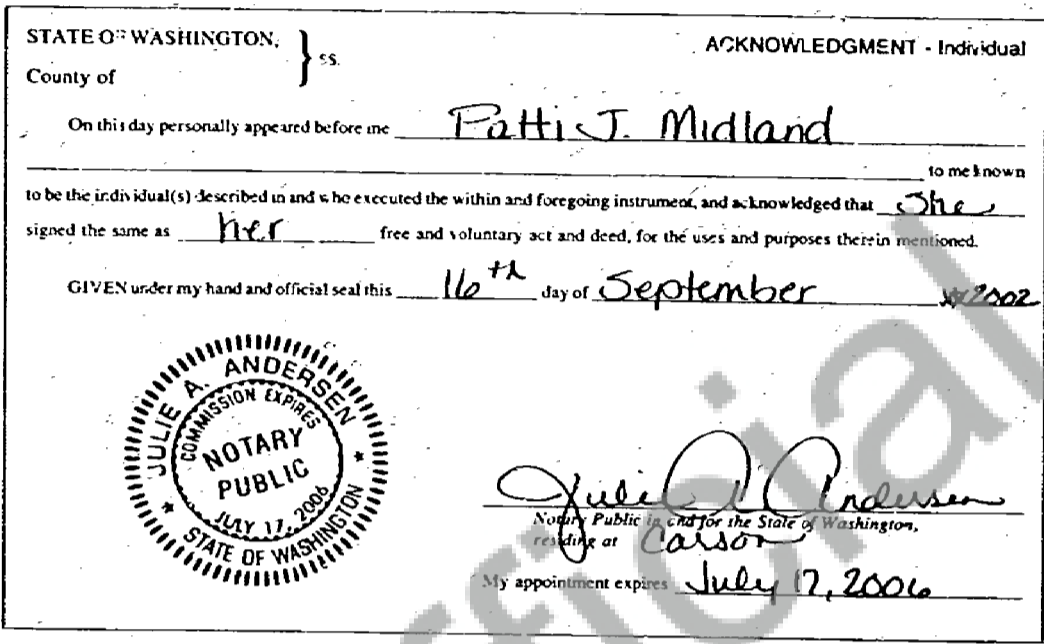 STATE OF WASHINGTON,
County of
ss.
ACKNOWLEDGMENT - Individual
On this day personally appeared before me Patti J. Midland
to me known
to be the individual(s) described in and who executed the within and foregoing instrument, and acknowledged that She
signed the same as her free and voluntary act and deed, for the uses and purposes therein mentioned.
GIVEN under my hand and official seal this 16th day of September 2002
JULIE A. ANDERSEN
COMMISSION EXPIRES
NOTARY
PUBLIC
JULY 17, 2006
STATE OF WASHINGTON
Julie A. Andersen
Notary Public in and for the State of Washington,
residing at Carson
My appointment expires July 17, 2006